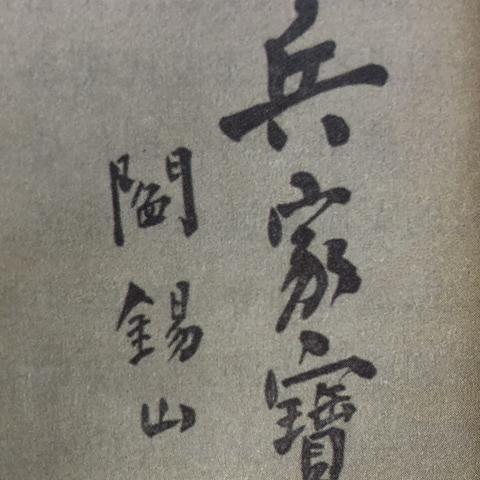 兵家寶
閻錫山